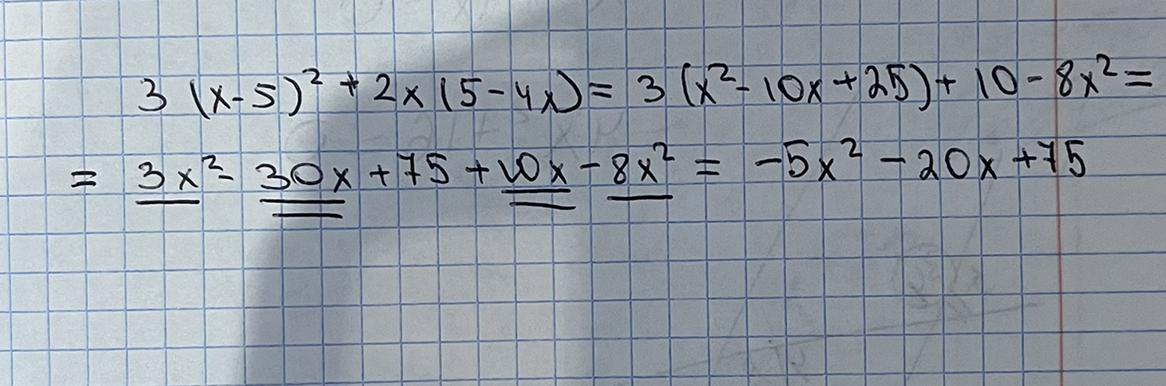 3(x-5)² + 2x(5-4x) = 3(x²-10x+25)+10-8x² =
= 3x² - 30x + 75 + 10x - 8x² = -5x² - 20x + 75